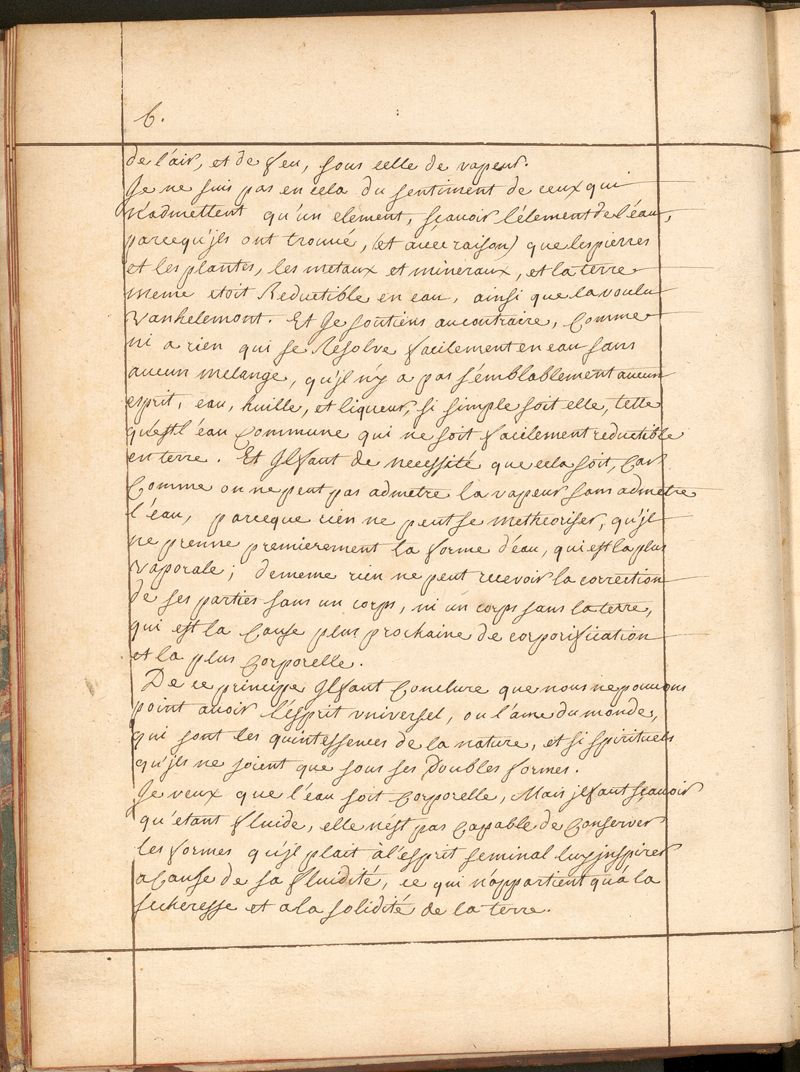 6.
de l'air, et de feu, sous celle de vapeur.
Je ne suis pas en cela du sentiment de ceux qui
n'admettent qu'un element, sçavoir l'élement de l'éau,
parcequ'jls ont trouué, (et auec raison) que les pierres
et les plantes, les metaux et mineraux, et la terre
meme etoit Reductible en eau, ainsi que la voulu
Vanhelemont. Et Je soutiens aucontraire, Comme
ni a rien qui se Résolve facilement en eau sans
aucun mélange, qu'jl n'y a pas sémblablement aucun
esprit, eau, huille, et liqueur, si simple soit elle, telle
qu'est l'éau Commune qui ne soit facilement reductible
en terre. Et Jl faut de necessité que cela soit, Car
Comme on ne peut pas admetre la vapeur sans admetre
l'éau, parceque rien ne peut se metheoriser, qu'jl
ne prenne premierement la forme d'éau, qui est la plus
vaporale; dememe rien ne peut recevoir la correction
de ses parties sans un corps, ni un corps sans la terre,
qui est la Cause plus prochaine de corporification
et la plus Corporelle.
De ce principe Jl faut Conclure que nous ne pouuons
point auoir l'ésprit vniversel, ou l'ame du monde,
qui sont les quintessences de la nature, et si spirituels
qu'jls ne soient que sous ses Doubles formes.
Je veux que l'éau soit Corporelle, Mais jl faut sçauoir
qu'étant fluide, elle n'est pas Capable de Conserver
les formes qu'jl plait à l'esprit seminal luy jnspirer
a Cause de sa fluidité, ce qui n'appartient qu'á la
secheresse et a la solidité de la terre.